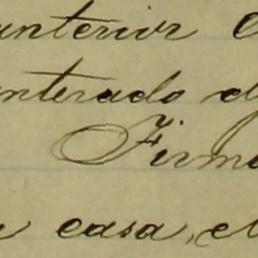 anterior
enterado
Firma
casa, el